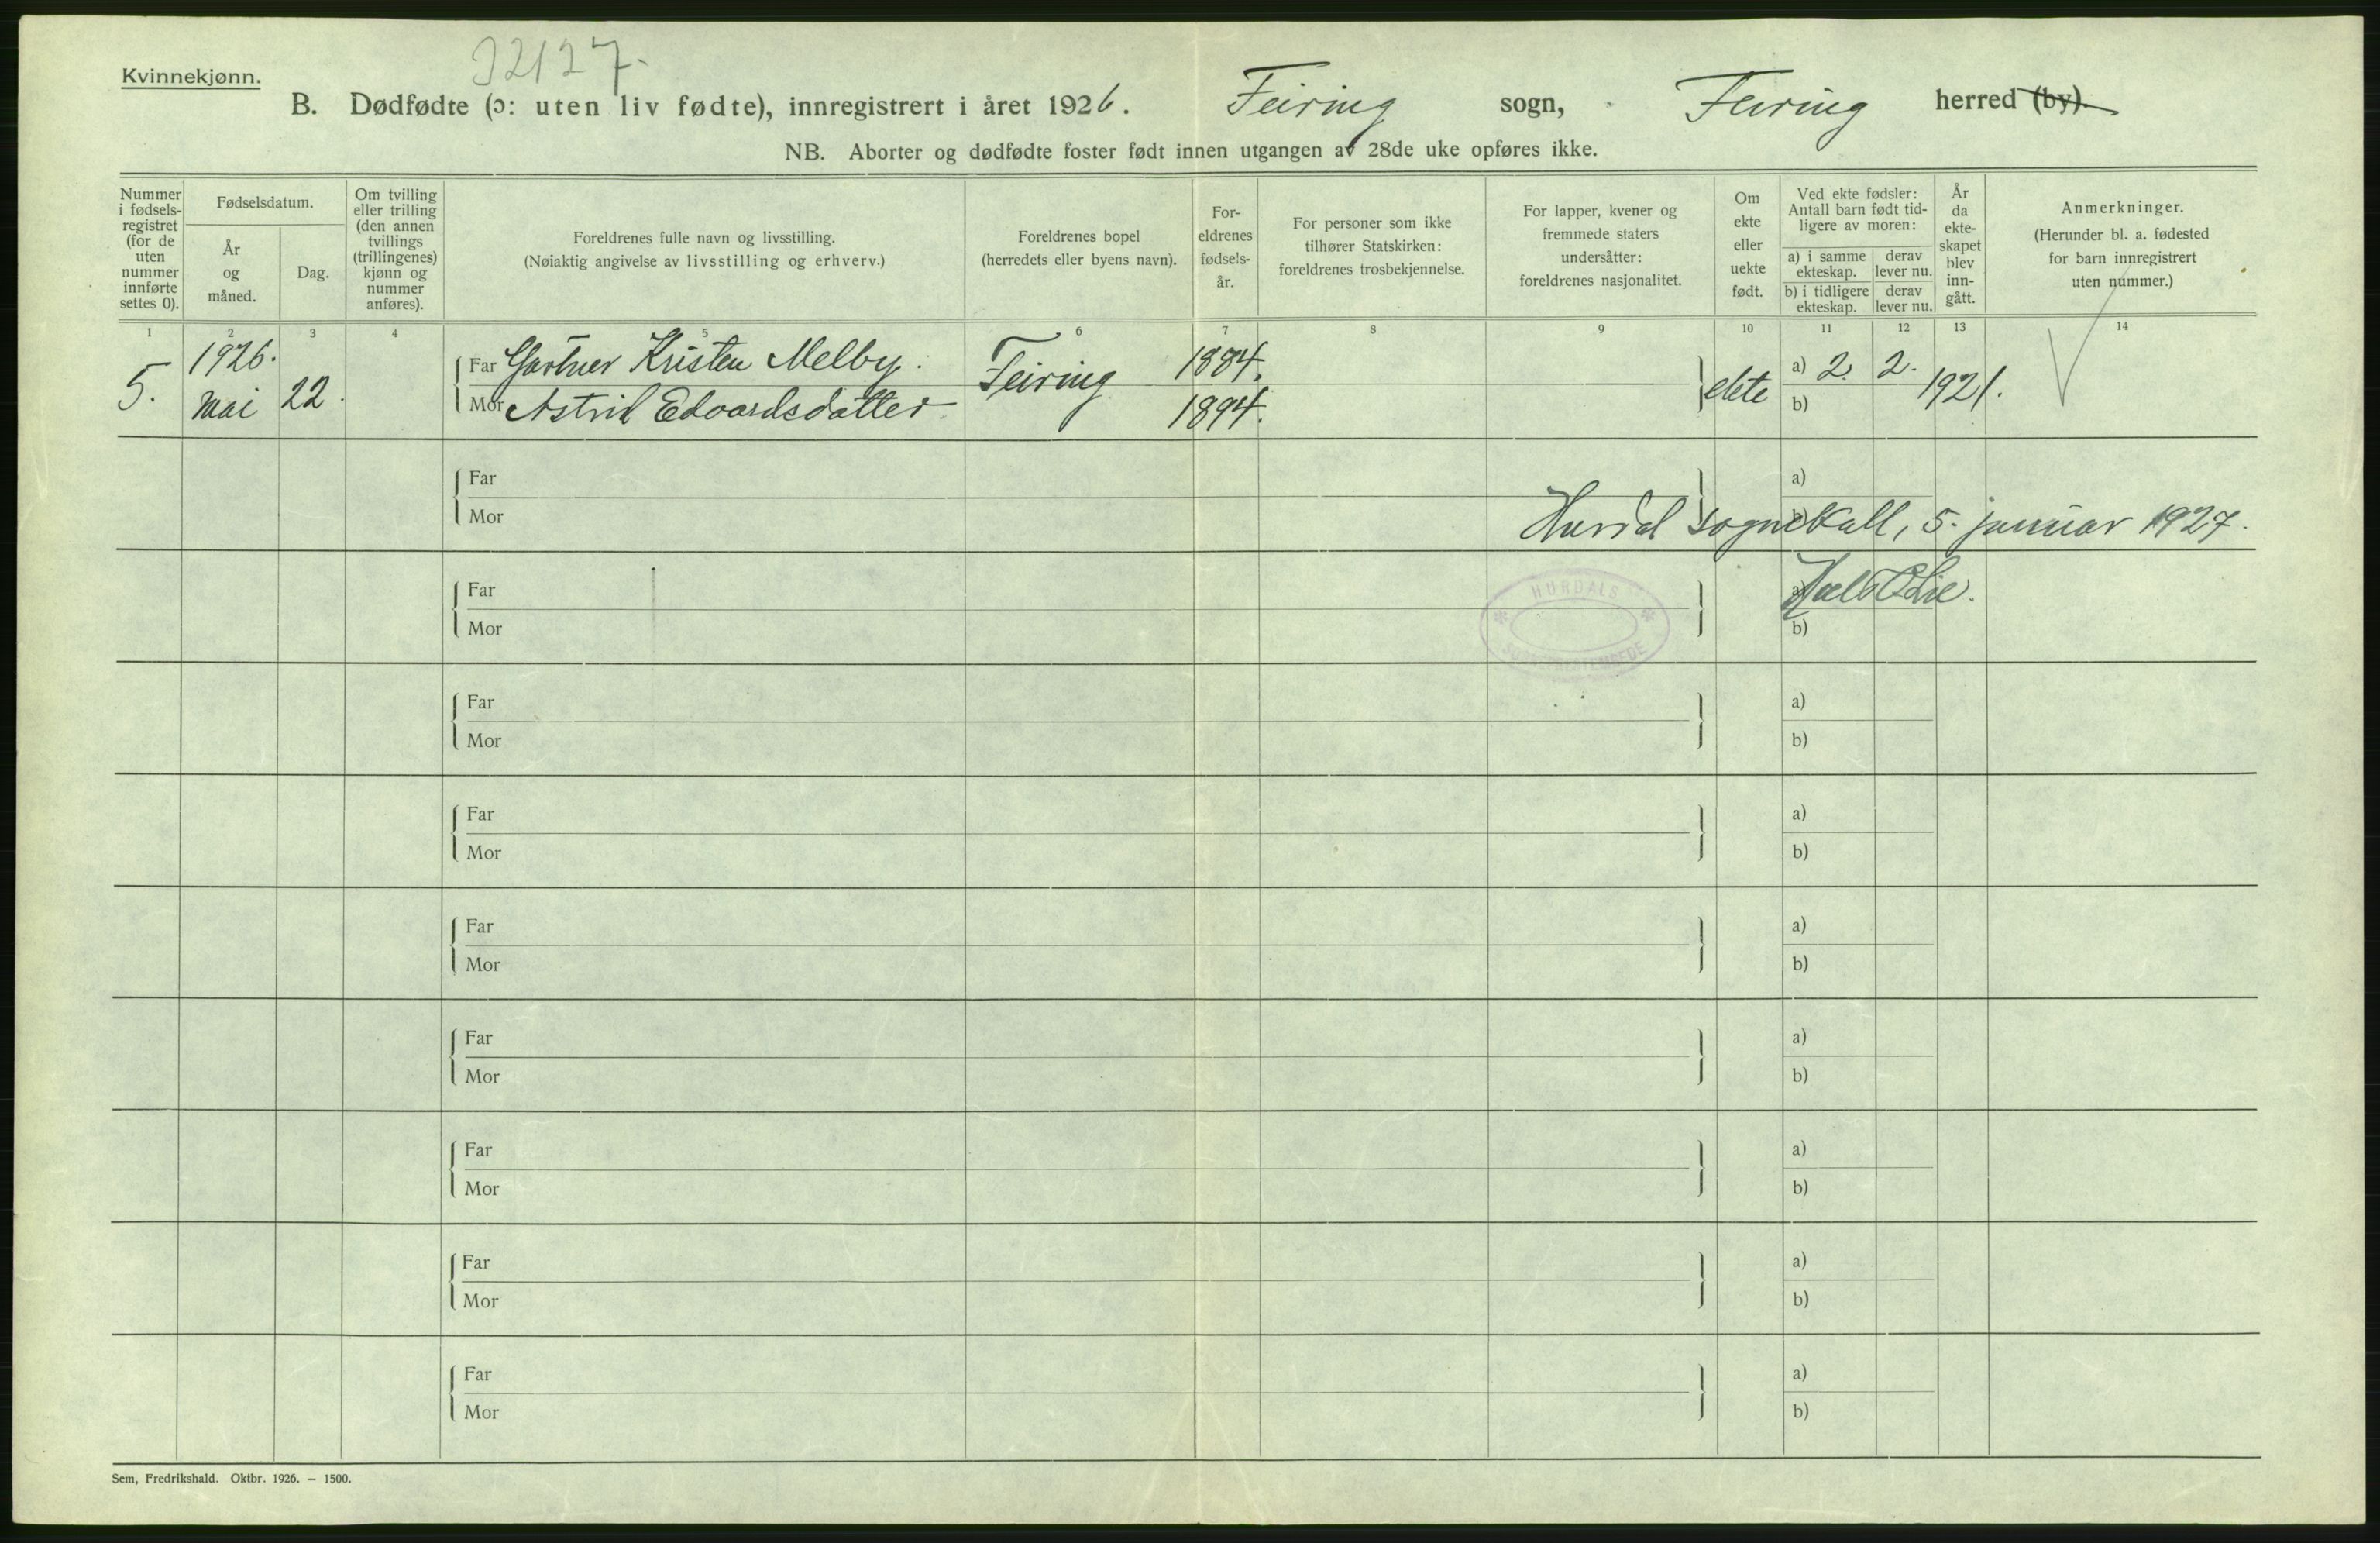 32127.
Kvinnekjønn.
B. Dødfødte (ɔ: uten liv fødte), innregistrert i året 1926. Feiring sogn, Feiring herred (by).
NB. Aborter og dødfødte foster født innen utgangen av 28de uke opføres ikke.
Nummer i fødsels-registret (for de uten nummer innførte settes 0).
Fødselsdatum.
År og måned.
Dag.
Om tvilling eller trilling (den annen tvillings (trillingenes) kjønn og nummer anføres).
Foreldrenes fulle navn og livsstilling.
(Nøiaktig angivelse av livsstilling og erhverv.)
Foreldrenes bopel
(herredets eller byens navn).
For-eldrenes fødsels-år.
For personer som ikke tilhører Statskirken: foreldrenes trosbekjennelse.
For lapper, kvener og fremmede staters undersåtter: foreldrenes nasjonalitet.
Om ekte eller uekte født.
Ved ekte fødsler:
Antall barn født tid-ligere av moren:
a) i samme ekteskap. derav lever nu.
b) i tidligere ekteskap. derav lever nu.
År da ekte-skapet blev inn-gått.
Anmerkninger.
(Herunder bl. a. fødested for barn innregistrert uten nummer.)
1 2 3 4 5 6 7 8 9 10 11 12 13 14
5. 1926. mai 22.
Far Gartner Kristen Melby. Feiring 1884. ekte a) 2. 2. 1921.
Mor Astrid Edvardsdatter 1894. b)
Far a)
Mor
Hurdal sognekall, 5. januar 1927.
HURDALS
Far a)
Mor b)
Far a)
Mor b)
Far a)
Mor b)
Far a)
Mor b)
Far a)
Mor b)
Far a)
Mor b)
Far a)
Mor b)
Far a)
Mor b)
Sem, Fredrikshald. Oktbr. 1926. – 1500.